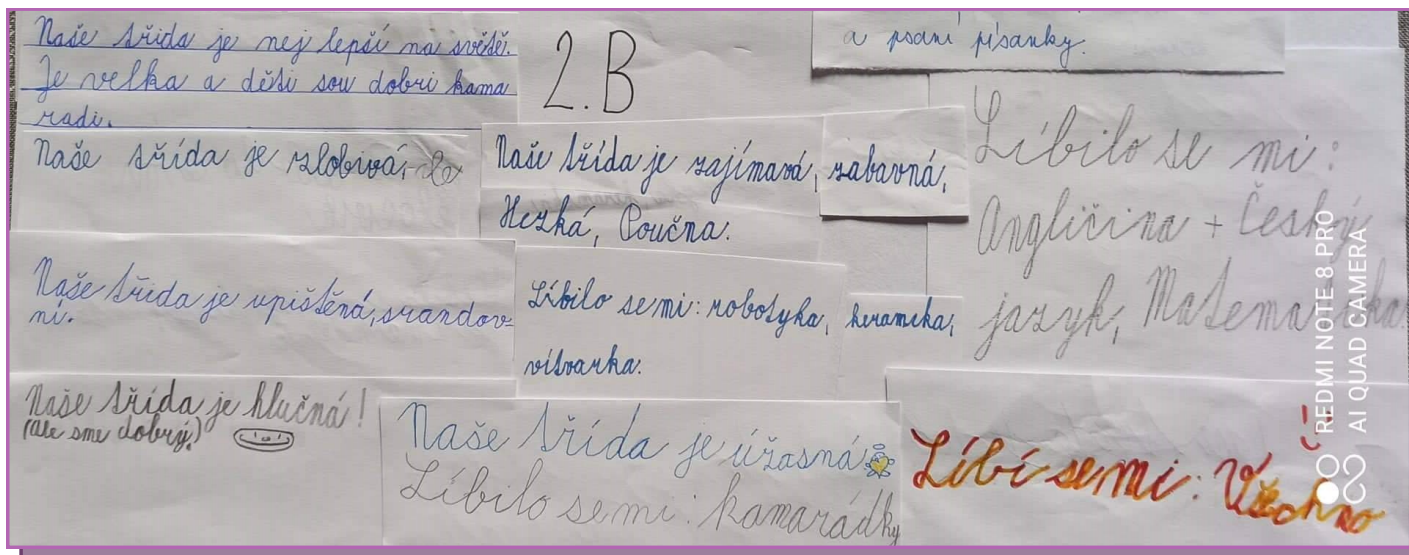 Naše třida je nej lepší na světě.
Je velka a děti sou dobri kama
radi.
2.B
a psaní písanky.
Naše třída je zlobivá,
Naše třída je zajímavá, zabavná,
Hezká, Poučna.
Líbilo se mi:
Angličina + Český
jazyk, Matematika.
Naše třida je upištěná, srandov-
ní.
Líbilo se mi: robotyka, keramika,
vítvarka.
Naše třída je hlučná!
(ale sme dobrý.)
Naše třída je úžasná
Líbilo se mi: kamarádky
Líbí se mi: Všechno
REDMI NOTE 8 PRO
AI QUAD CAMERA